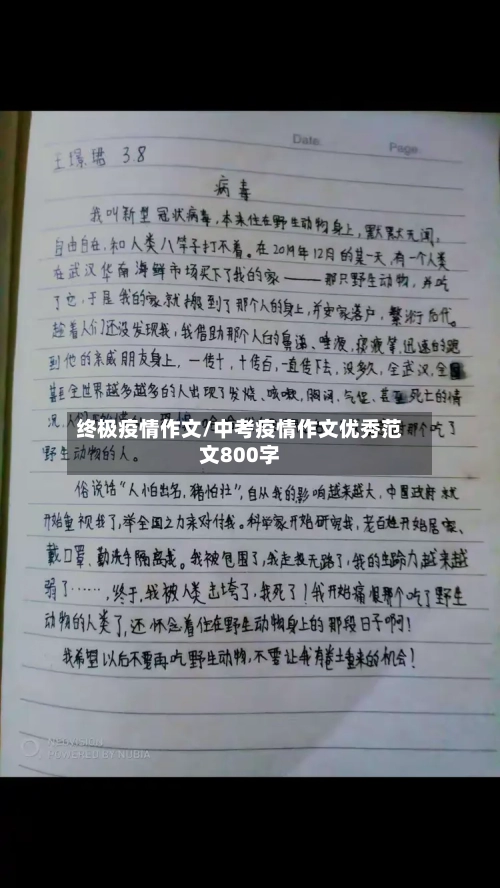 Date
Page
王璟珺 3.8
病毒
我叫新型冠状病毒,本来住在野生动物身上,默默无闻,
自由自在,和人类八竿子打不着。在2019年12月的某一天,有一个人类
在武汉华南海鲜市场买下了我的家——那只野生动物,并吃
了它,于是我的家就搬到了那个人的身上,并安家落户,繁衍后代。
趁着人们还没发现我,我借助那个人的鼻涕、唾液、痰液等,迅速的跑
到他的亲戚朋友身上,一传十,十传百,一直传下去,没多久,全武汉,全国
甚至全世界越多越多的人出现了发烧、咳嗽,胸闷,气促,甚至死亡的情
况,人们
那个吃了
野生动物的人。
终极疫情作文/中考疫情作文优秀范
文800字
俗说话“人怕出名,猪怕壮”,自从我的影响越来越大,中国政府就
开始重视我了,举全国之力来对付我。科学家开始研究我,老百姓开始居家、
戴口罩、勤洗手隔离我。我被包围了,我走投无路了,我的生命力越来越
弱了……,终于,我被人类击垮了,我死了!我开始痛恨那个吃了野生
动物的人类了,还怀念着住在野生动物身上的那段日子啊!
我希望以后不要再吃野生动物,不要让我有卷土重来的机会!
POWERED BY NUBIA